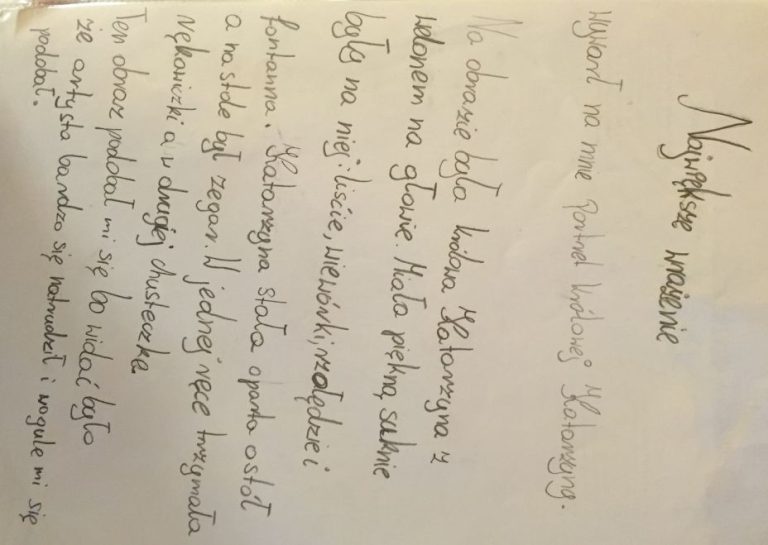 Największe wrażenie
wywarł na mnie Portret królowej Katarzyny.
Na obrazie była królowa Katarzyna z
welonem na głowie. Miała piękną suknie
były na niej liście, wiewiórki, rzołędzie i
fontanna. Katarzyna stała oparta o stół
a na stole był zegar. W jednej ręce trzymała
rękawiczki a w drugiej chusteczke
Ten obraz podobał mi się bo widać było
że artysta bardzo się natrudził i wogule mi się
podobał.